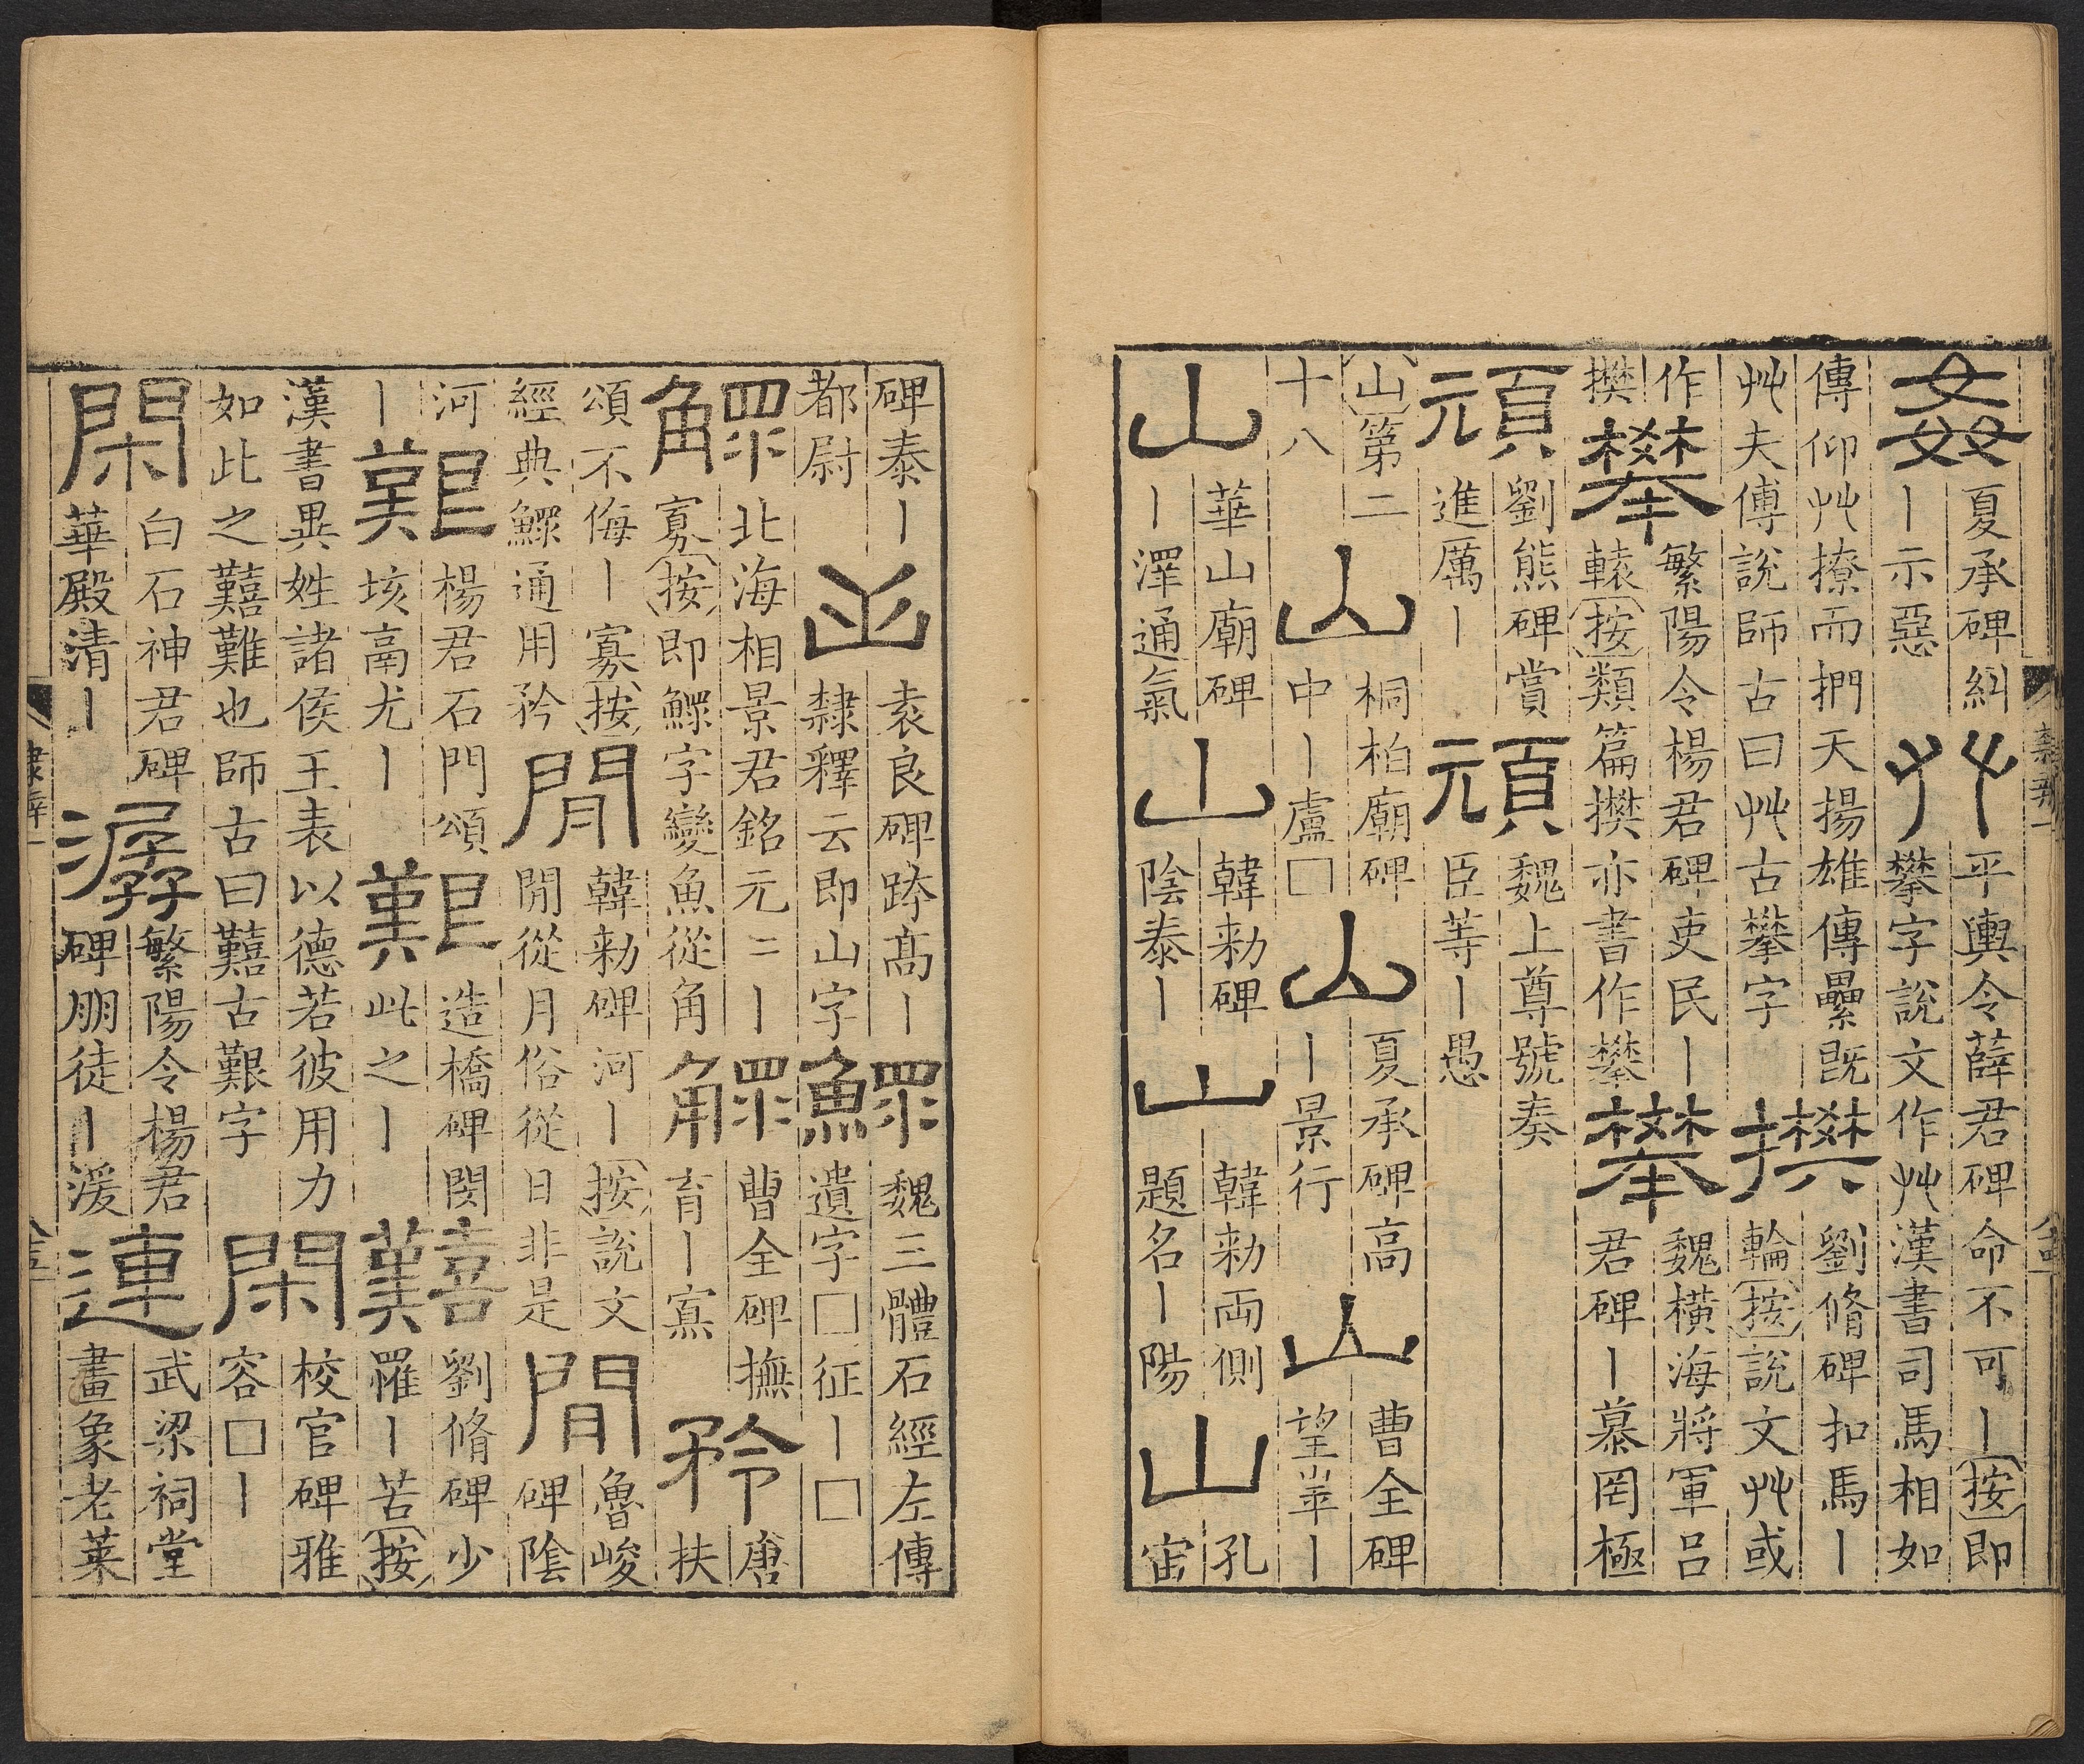 姦夏承碑糾丨示惡艸平輿令薛君碑命不可丨按即攀字說文作艸漢書司馬相如
傳仰艸橑而捫天揚雄傳纍既艸夫傅說師古曰艸古攀字撲劉脩碑扣馬丨輪按說文艸或
作攀樊繁陽令楊君碑吏民丨轅按類篇樊亦書作攀攀魏橫海將軍呂君碑丨慕罔極
頑劉熊碑賞進厲丨頑魏上尊號奏臣等丨愚
山第二十八山桐柏廟碑中丨廬□山夏承碑高丨景行山曹全碑望崋丨
山華山廟碑丨澤通氣山韓勑碑陰泰丨山韓勑兩側題名丨陽山孔宙
隸辨一
碑泰丨都尉山袁良碑跡高丨隸釋云即山字鰥魏三體石經左傳遺字□征丨□
鰥北海相景君銘元二丨寡按即鰥字變魚從角鰥曹全碑撫育丨寡矜唐扶
頌不侮丨寡按經典鰥通用矜閒韓勑碑河丨按說文閒從月俗從日非是間魯峻碑陰
河丨艱楊君石門頌垓鬲尤丨艱造橋碑閔此之丨囏劉脩碑少罹丨苦按
漢書異姓諸侯王表以德若彼用力如此之囏難也師古曰囏古艱字閑校官碑雅容□丨
閑白石神君碑華殿清丨潺繁陽令楊君碑朋徒丨湲連武梁祠堂畫象老萊
隸辨一